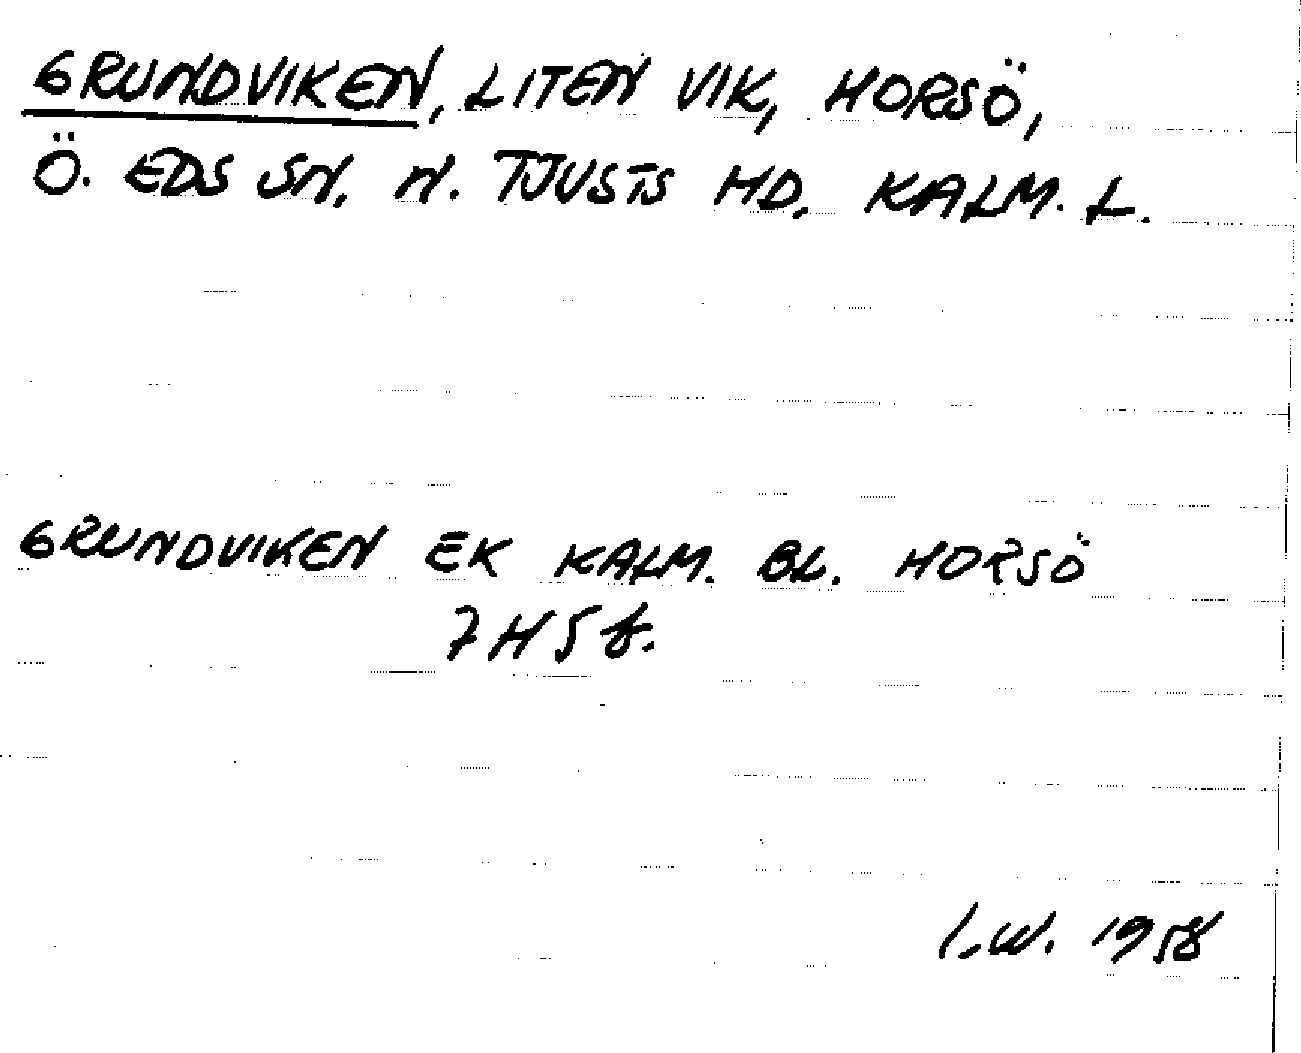 GRUNDVIKEN, LITEN VIK, HORSÖ,
Ö. EDS SN. N. TJUSTS HD. KALM. L.
GRUNDVIKEN EK KALM. BL. HORSÖ
7H5f.
I.W. 1958